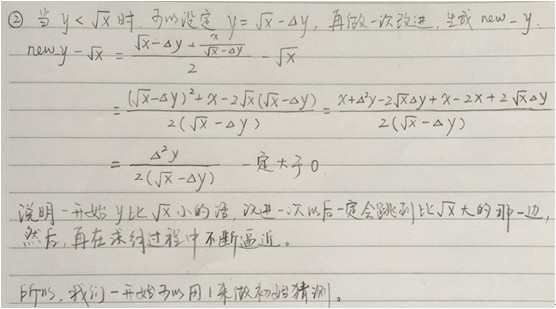 ② 当 y < √x 时, 可以设定 y = √x - Δy, 再做一次改进, 生成 new-y.
new y - √x = (√x - Δy + x/(√x - Δy))/2 - √x
= ((√x - Δy)² + x - 2√x(√x - Δy))/(2(√x - Δy)) = (x + Δ²y - 2√xΔy + x - 2x + 2√xΔy)/(2(√x - Δy))
= Δ²y/(2(√x - Δy)) 一定大于 0
说明一开始 y 比 √x 小的话, 改进一次以后一定会跳到比 √x 大的那一边,
然后, 再在求解过程中不断逼近。
所以, 我们一开始可以用 1 来做初始猜测。